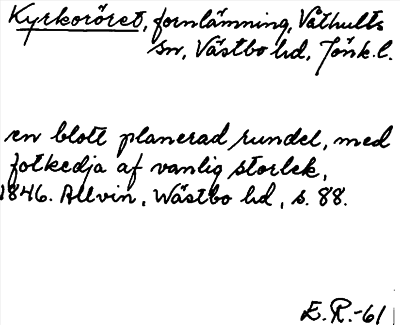 Kyrkoröret, fornlämning, Våthults
sn, Västbo hd, Jönk.l.
en blott planerad rundel, med
fotkedja af vanlig storlek,
1846. Allvin, Wästbo hd, s. 88.
E.R.-61